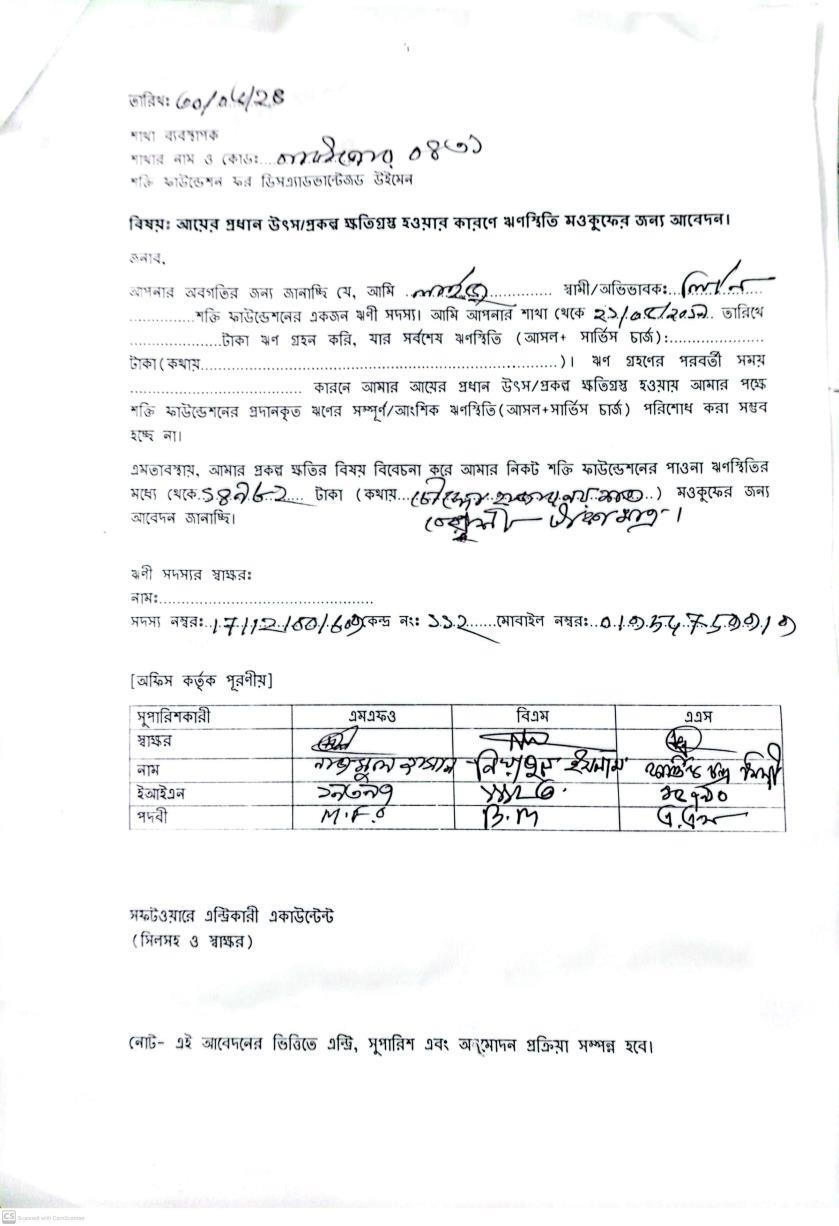 তারিখ:
শাখা ব্যবস্থাপক
শাখার নাম ও কোড:.... ০৪৩১
শক্তি ফাউন্ডেশন ফর ডিসএ্যাডভান্টেজড উইমেন
বিষয়: আয়ের প্রধান উৎস/প্রকল্প ক্ষতিগ্রস্থ হওয়ার কারণে ঋণস্থিতি মওকুফের জন্য আবেদন।
জনাব,
আপনার অবগতির জন্য জানাচ্ছি যে, আমি .............. স্বামী/অভিভাবক:..............
..............শক্তি ফাউন্ডেশনের একজন ঋণী সদস্য। আমি আপনার শাখা থেকে তারিখে
....................টাকা ঋণ গ্রহন করি, যার সর্বশেষ ঋণস্থিতি (আসল+ সার্ভিস চার্জ):....................
টাকা(কথায়......................................................)। ঋণ গ্রহণের পরবর্তী সময়
.............................. কারনে আমার আয়ের প্রধান উৎস/প্রকল্প ক্ষতিগ্রস্থ হওয়ায় আমার পক্ষে
শক্তি ফাউন্ডেশনের প্রদানকৃত ঋণের সম্পূর্ণ/আংশিক ঋণস্থিতি(আসল+সার্ভিস চার্জ) পরিশোধ করা সম্ভব
হচ্ছে না।
এমতাবস্থায়, আমার প্রকল্প ক্ষতির বিষয় বিবেচনা করে আমার নিকট শক্তি ফাউন্ডেশনের পাওনা ঋণস্থিতির
মধ্যে থেকে.১৪৯৮২.... টাকা (কথায়...চৌদ্দ হাজার নয় শত..) মওকুফের জন্য
আবেদন জানাচ্ছি। টাকা মাত্র।
ঋণী সদস্যর স্বাক্ষর:
নাম:..........................................
সদস্য নম্বর: কেন্দ্র নং: ১১২.......মোবাইল নম্বর:
[অফিস কর্তৃক পূরণীয়]
সুপারিশকারী এমএফও বিএম এএস
স্বাক্ষর
নাম নাজমুল হাসান ইসলাম চন্দ্র
ইআইএন
পদবী M.F.O B.M এ.এস
সফটওয়ারে এন্ট্রিকারী একাউন্টেন্ট
(সিলসহ ও স্বাক্ষর)
নোট- এই আবেদনের ভিত্তিতে এন্ট্রি, সুপারিশ এবং অনুমোদন প্রক্রিয়া সম্পন্ন হবে।
CS Scanned with CamScanner